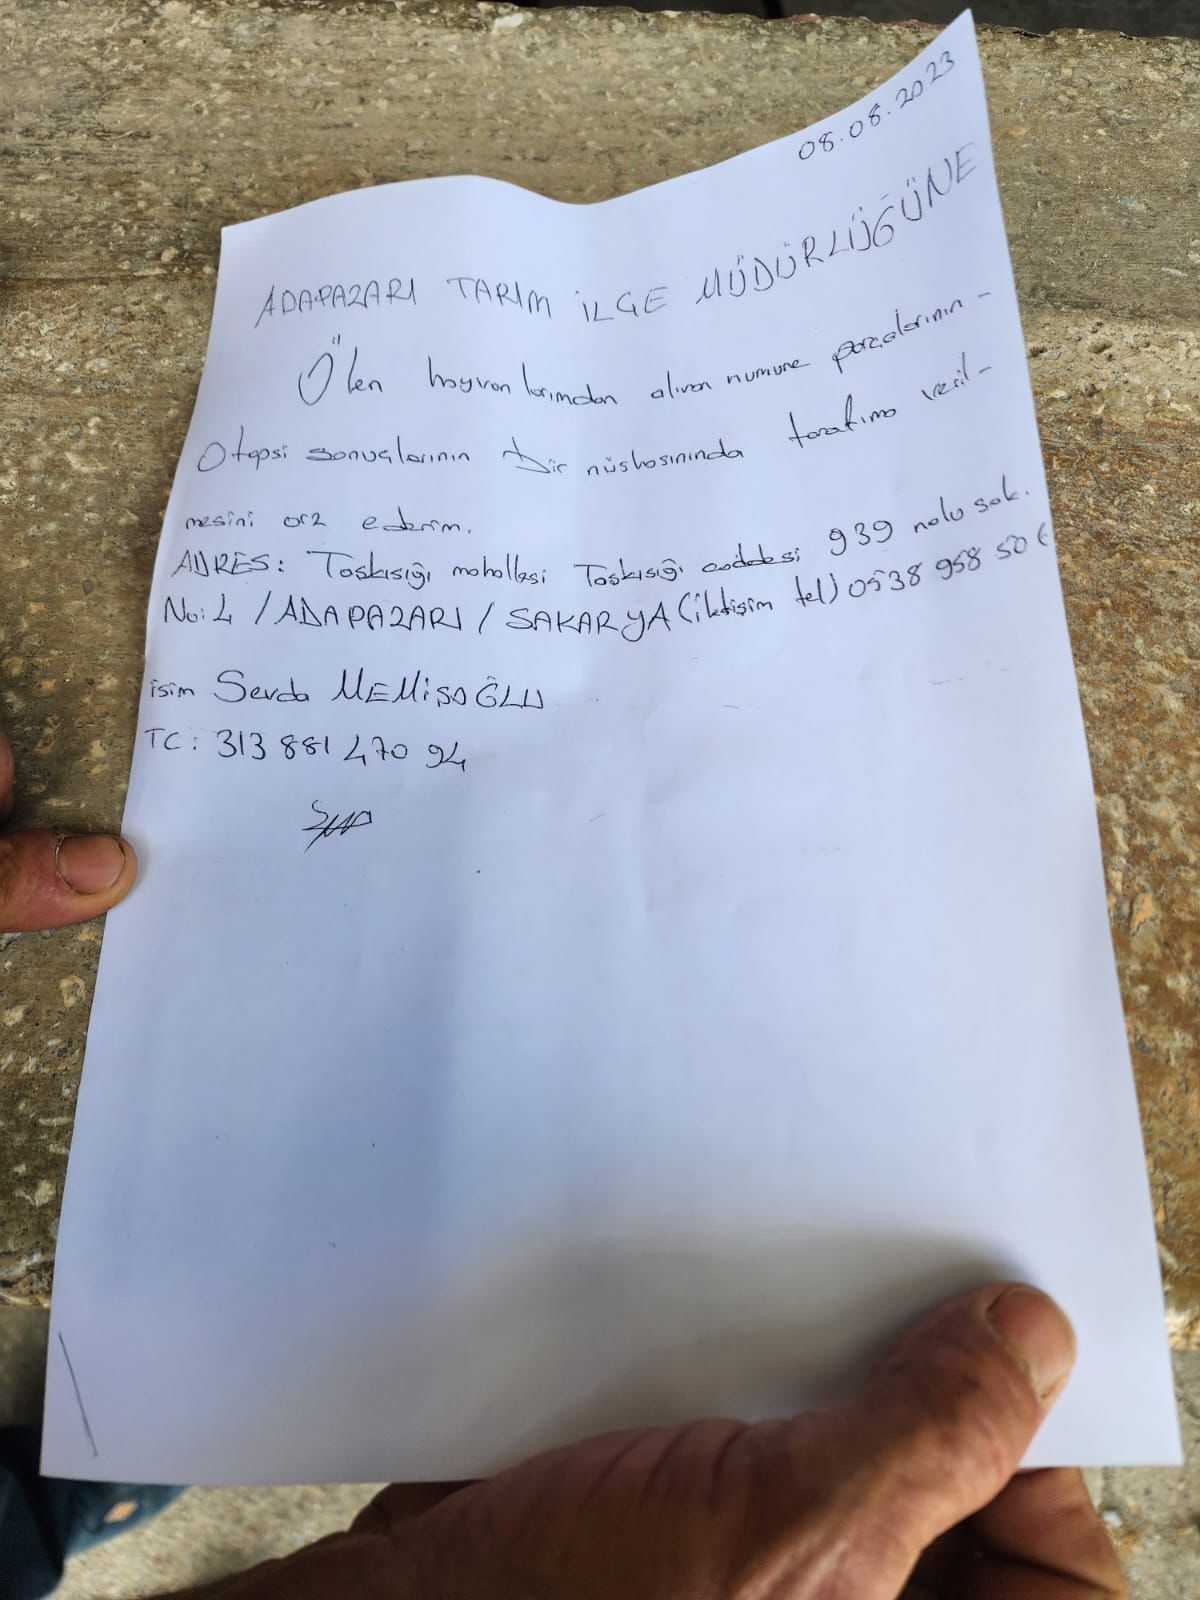 08.08.2023
ADAPAZARI TARIM İLÇE MÜDÜRLÜĞÜNE
Ölen hayvanlarımdan alınan numune parçalarının-
Otopsi sonuçlarının bir nüshasınında tarafıma veril-
mesini arz ederim.
ADRES: Taşkısığı mahallesi Taşkısığı caddesi 939 nolu sok.
No:4 / ADAPAZARI / SAKARYA (iletişim tel) 0538 958 50 6
isim Sevda MEMİŞOĞLU
TC: 313 881 470 94